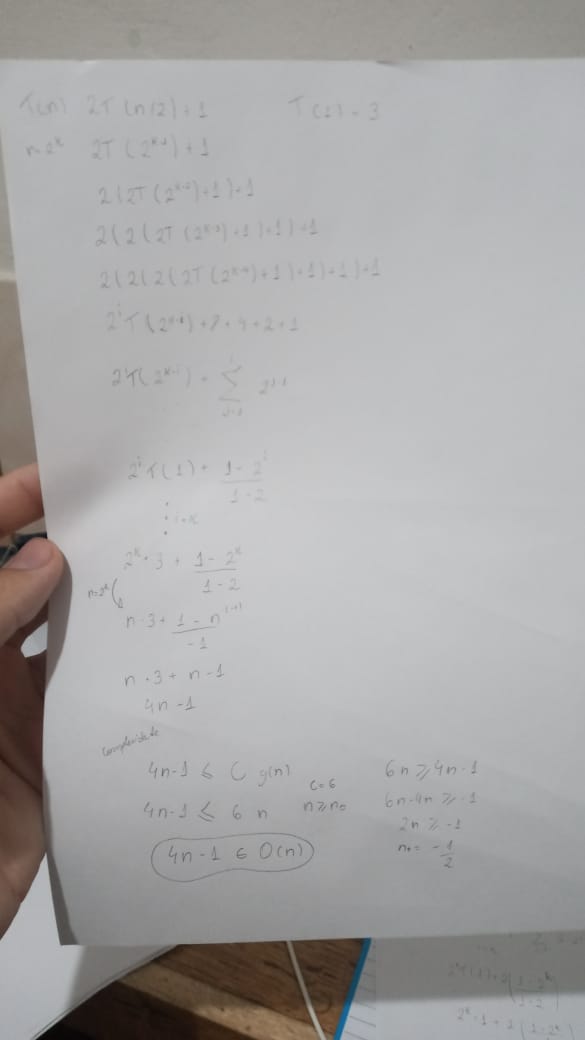 T(n) 2T(n/2)+1 T(1) = 3
n=2^k 2T(2^{k-1})+1
2(2T(2^{k-2})+1)+1
2(2(2T(2^{k-3})+1)+1)+1
2(2(2(2T(2^{k-4})+1)+1)+1)+1
2^i T(2^{k-i})+7+4+2+1
2^i T(2^{k-i}) + \sum_{j=1}^{i} 2^{j-1}
2^i T(1) + \frac{1-2^i}{1-2}
⋮ i=k
2^k · 3 + \frac{1-2^k}{1-2}
n=2^k
n·3 + \frac{1-n}{-1}
n·3 + n-1
4n-1
complexidade
4n-1 ≤ C g(n) 6n ≥ 4n-1
4n-1 ≤ 6 n C=6 n ≥ n₀ 6n-4n ≥ -1
2n ≥ -1
4n-1 ∈ O(n) n₀ = -\frac{1}{2}